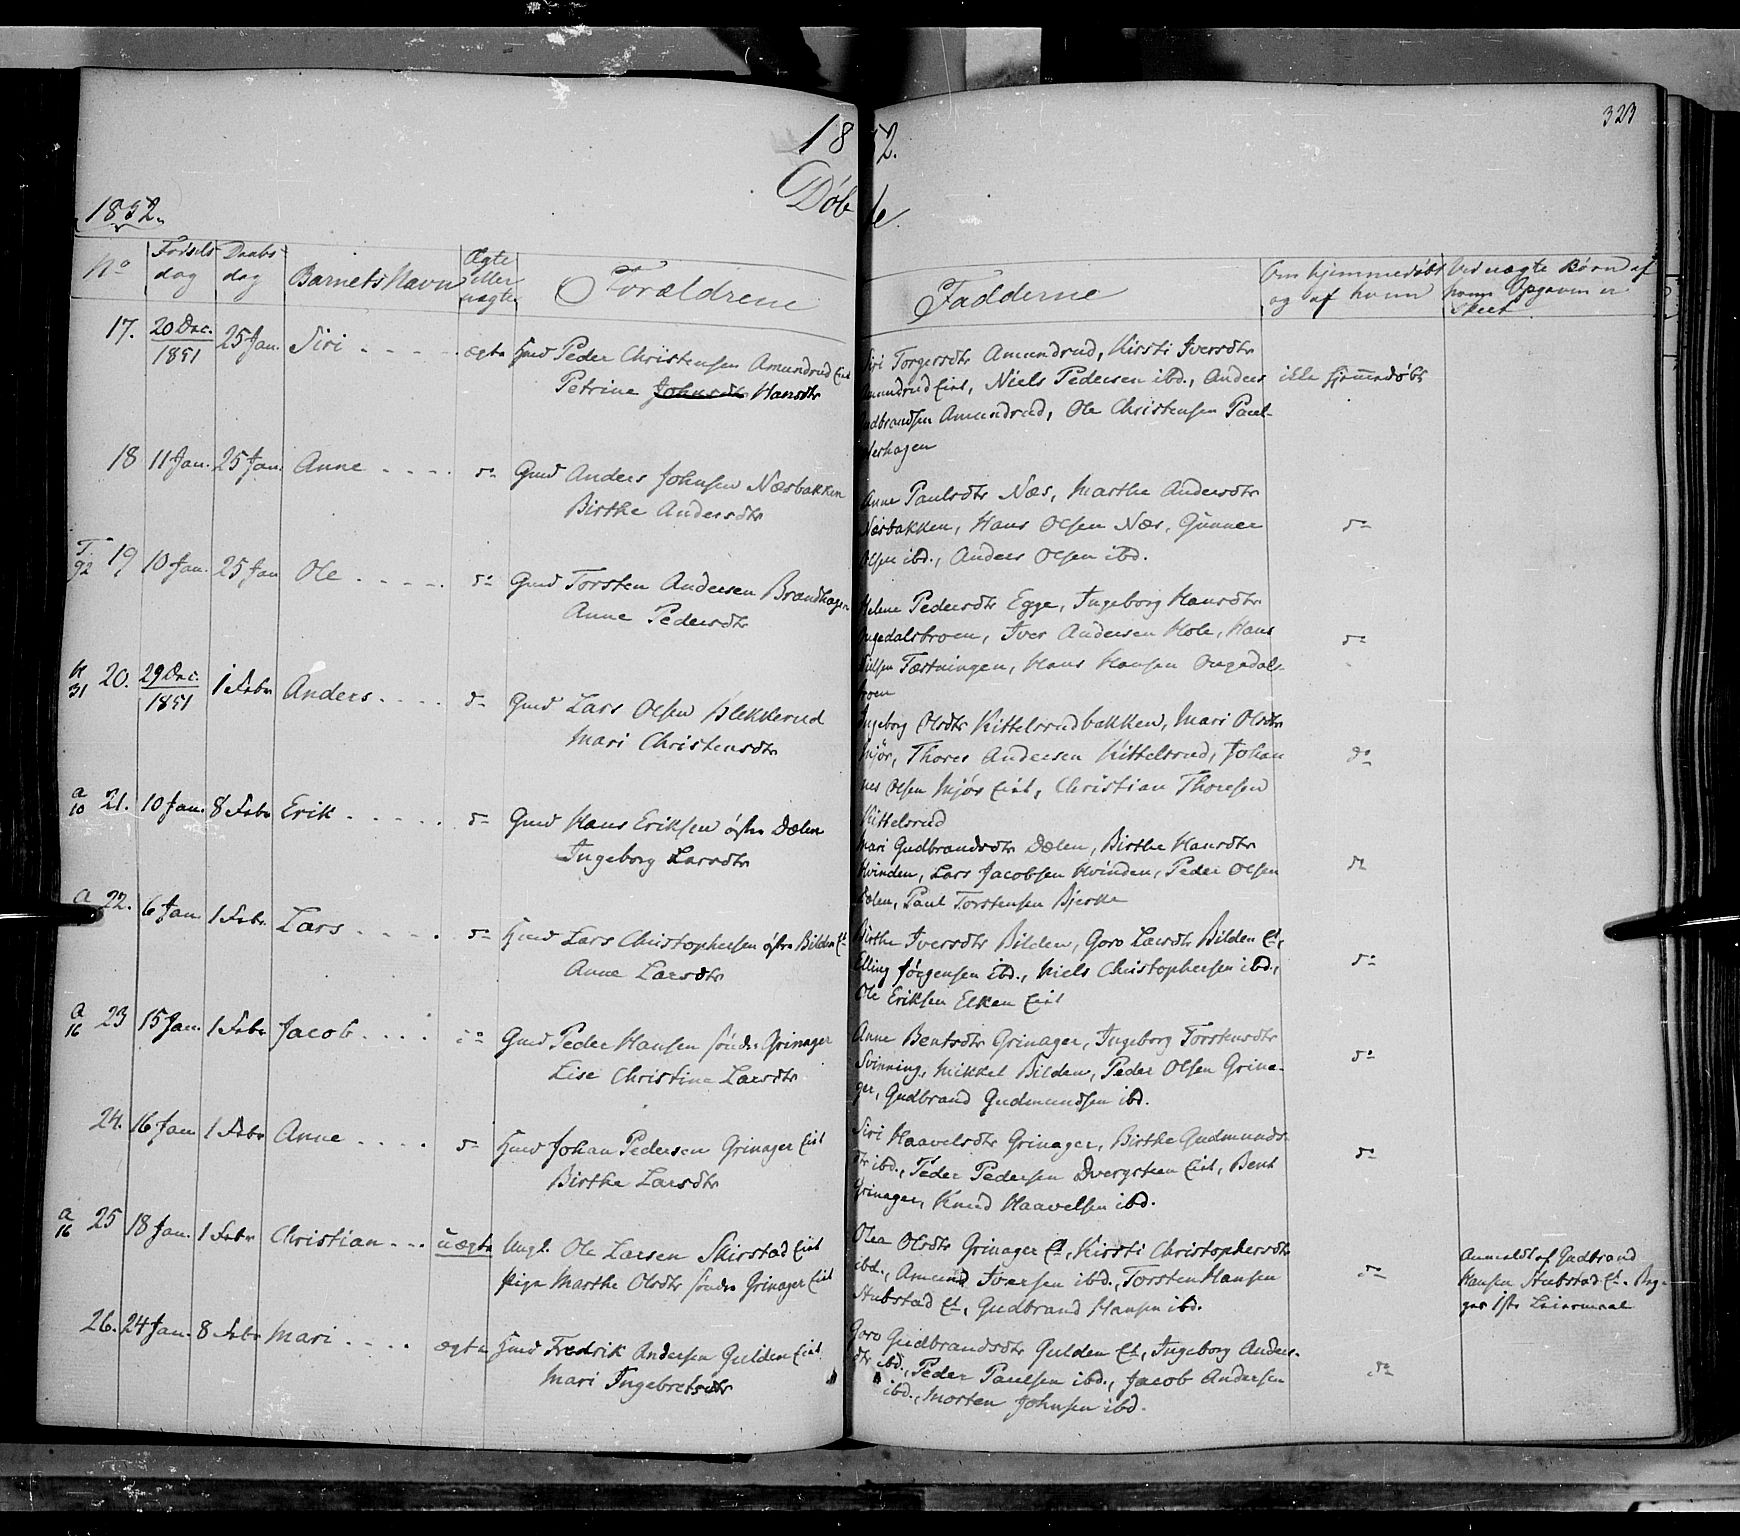 323
1852.
Døbte.
1852.
No
Fødsels dag
Daabs dag
Barnets Navn
Ægte eller uægte
Forældrene
Fadderne
Om hjemmedøbt og af hvem
Ved uægte Børn af hvem Opgaven er skeet
17. 20 Dec. 1851 25 Jan. Siri ægte Huusmd Peder Christensen Amundrud Eiet
Petrine Johnsdtr Hansdtr
Siri Torgersdtr Amundrud, Kirsti Iversdtr
Amundrud Eiet, Niels Pedersen ibd., Anders
Gudbrandsen Amundrud, Ole Christensen Paul-
ikke hjemmedøbt
18 11 Jan. 25 Jan. Anne do Gmd Anders Johnsen Næsbakken
Birthe Andersdtr
Anne Paulsdtr Næs, Marthe Andersdtr
Næsbakken, Hans Olsen Næs, Gunner
Olsen ibd., Anders Olsen ibd.
do
T. 92 19 10 Jan. 25 Jan Ole do Gmd Torsten Andersen Brændhagen
Anne Pedersdtr
Helene Pedersdtr Egge, Ingeborg Hansdtr
Ongedalsbroen, Iver Andersen Hole, Hans
Nielsen Tæstningen, Hans Hansen Ongedals-
broen
do
H 31 20. 29 Dec. 1851 1 Febr Anders do Gmd Lars Olsen Klekkerud
Mari Christensdtr
Ingeborg Olsdtr Kittelsrudbakken, Mari Olsdtr
Mjør, Thores Andersen Kittelsrud, Johan
nes Olsen Mjør Eiet, Christian Thoresen
Kittelsrud
do
a 10 21. 10 Jan. 8 Febr Erik do Gmd Hans Eriksen østre Dælen
Ingeborg Larsdtr
Mari Gudbrandsdtr Dælen, Birthe Hansdtr
Hvinden, Lars Jacobsen Hvinden, Peder Olsen
Dælen, Paul Torstensen Bjerke
do
a 22. 6 Jan. 1 Febr. Lars do Huusmd Lars Christophersen østre Bilden Et
Anne Larsdtr
Birthe Iversdtr Bilden, Goro Larsdtr Bilden Et,
Elling Jørgensen ibd., Niels Christophersen ibd.,
Ole Eriksen Elken Eiet
do
a 16 23 15 Jan. 1 Febr Jacob do Gmd Peder Hansen søndre Grinager
Lise Christine Larsdtr
Anne Bentsdtr Grinager, Ingeborg Torstensdtr
Svinning, Mikkel Bilden, Peder Olsen Grina-
ger, Gudbrand Gudmundsen ibd.
do
24. 16 Jan 1 Febr Anne do Huusmd Johan Pedersen Grinager Eiet
Birthe Larsdtr
Siri Haavelsdtr Grinager, Birthe Gudmunds-
dtr ibd., Peder Pedersen Dvergsten Eiet, Bent
Grinager, Knud Haavelsen ibd.
do
a 16 25 18 Jan. 1 Febr Christian uægte Ungk. Ole Larsen Skirstad Eiet
Pige Marthe Olsdtr søndre Grinager Eiet
Olea Olsdtr Grinager Et, Kirsti Christophersdtr
ibd., Amund Iversen ibd., Torsten Hansen
Hubstad Et, Gudbrand Hansen ibd.
do
Anmeldt af Gudbrand
Hansen Hubstad Et. Beg-
ges 1ste Leiermaal
26. 24 Jan. 8 Febr Mari ægte Huusmd Fredrik Andersen Gulden Eiet
Mari Ingebretsdtr
Goro Gudbrandsdtr Gulden Et, Ingeborg Anders-
dtr ibd., Peder Paulsen ibd., Jacob Andersen
ibd., Morten Johnsen ibd.
do